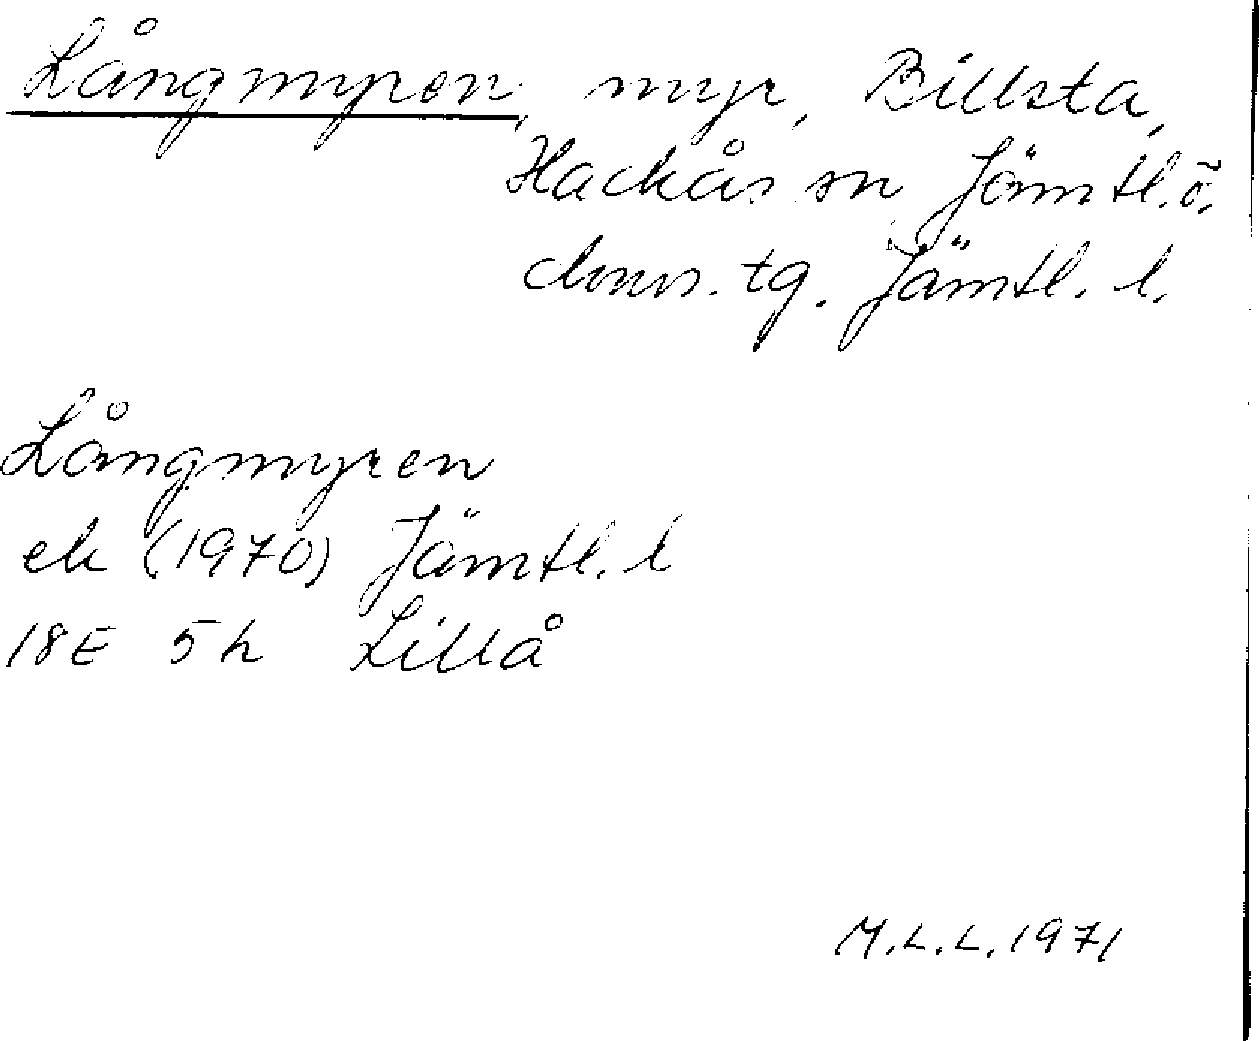 Långmyren, myr, Billsta,
Hackås sn, Jämtl. ö.
doms. tg. Jämtl. l.
Långmyren
ek (1970) Jämtl. l
18E 5h Lillå
M.L.L. 1971